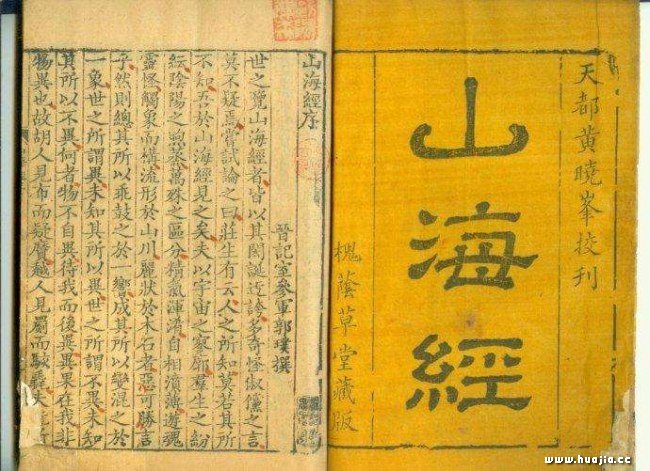 天都黃曉峯挍刊
山海經
槐蔭草堂藏版
山海經序
晉記室參軍郭璞撰
世之覽山海經者皆以其閎誕迂誇多奇怪俶儻之言
莫不疑焉嘗試論之曰莊生有云人之所知莫若其所
不知吾於山海經見之矣夫以宇宙之寥廓羣生之紛
紜陰陽之煦蒸萬殊之區分精氣渾淆自相濆薄遊魂
靈怪觸象而構流形於山川麗狀於木石者惡可勝言
乎然則總其所以乖鼓之於一響成其所以變混之於
一象世之所謂異未知其所以異世之所謂不異未知
其所以不異何者物不自異待我而後異異果在我非
物異也故胡人見布而疑黂越人見罽而駭毳夫
www.huajia.cc